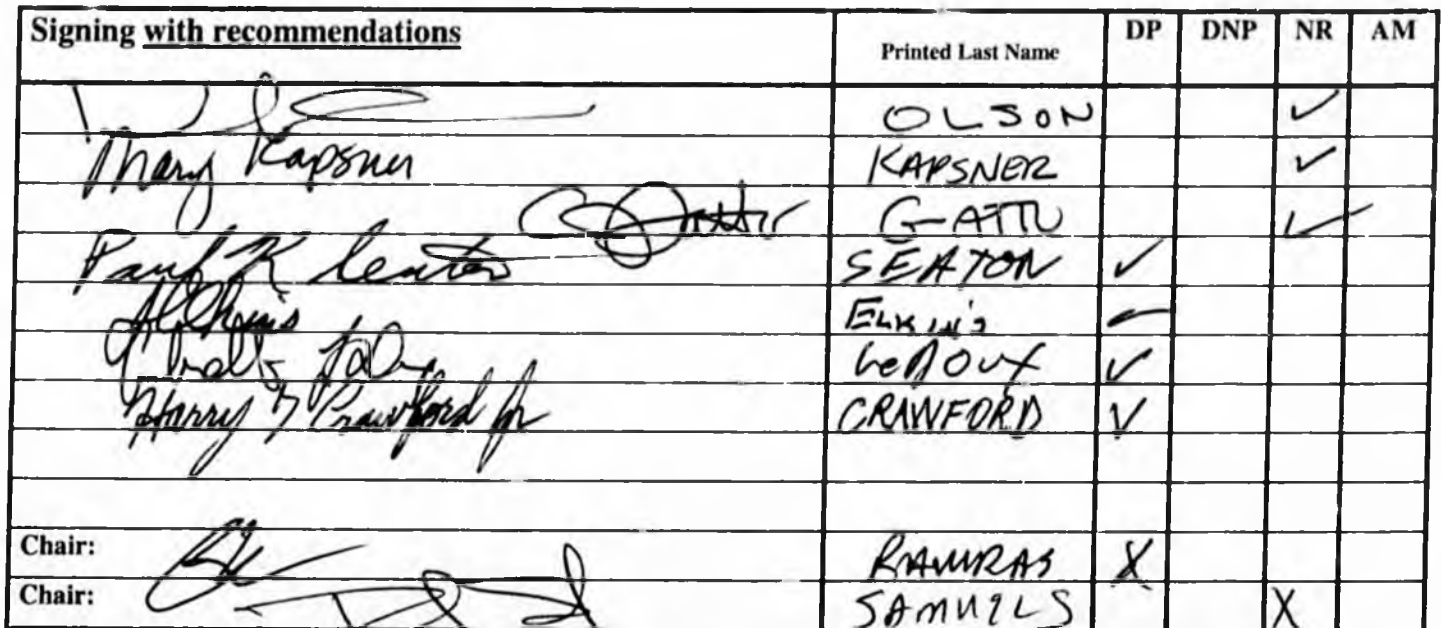 Signing with recommendations Printed Last Name DP DNP NR AM
OLSON ✓
Mary Kapsner KAPSNER ✓
GATTO ✓
Paul K Seaton SEATON ✓
ELKINS
LeDoux ✓
Harry T Crawford Jr CRAWFORD ✓
Chair: RAMRAS X
Chair: SAMUELS X